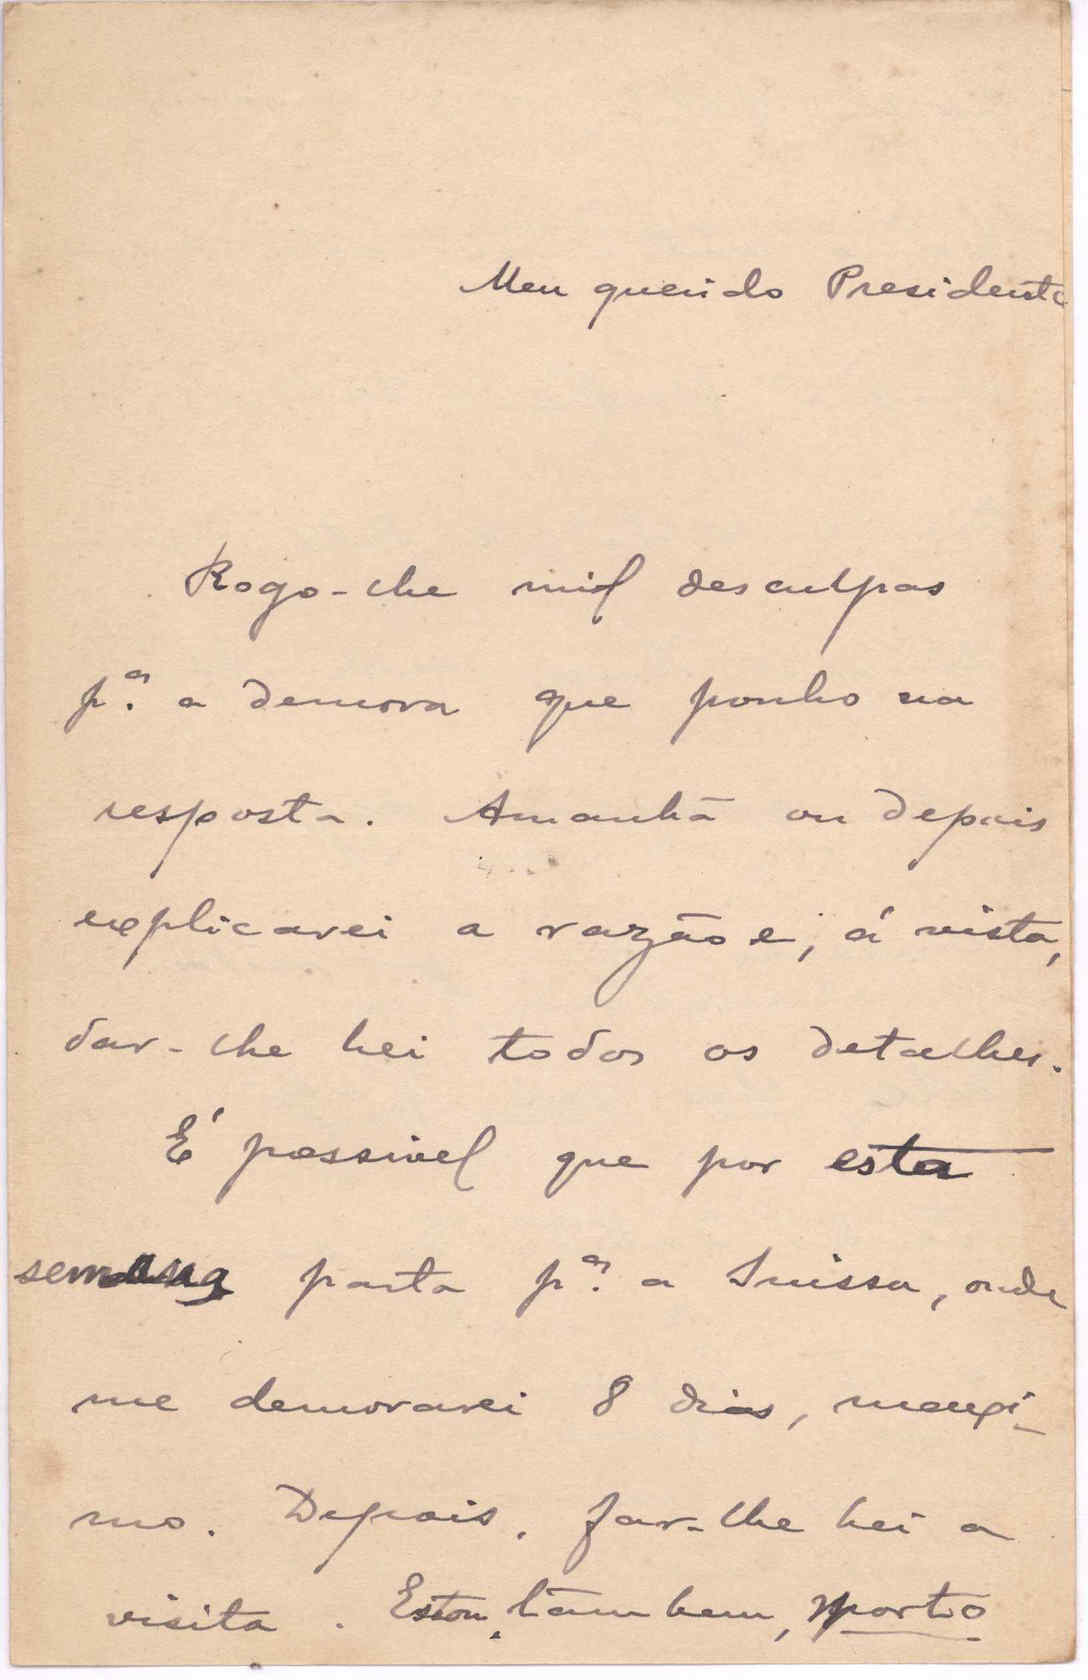 Meu querido Presidente
Rogo-lhe mil desculpas
pª. a demora que ponho na
resposta. Amanhã ou depois
explicarei a razão e, á vista,
dar-lhe hei todos os detalhes.
É possivel que por esta
semana parta pª. a Suissa, onde
me demorarei 8 dias, maxi-
mo. Depois, far-lhe hei a
visita. Estou, tambem, morto